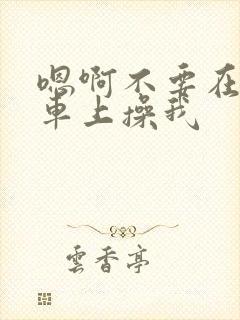 嗯啊不要在
車上操我
雲香亭